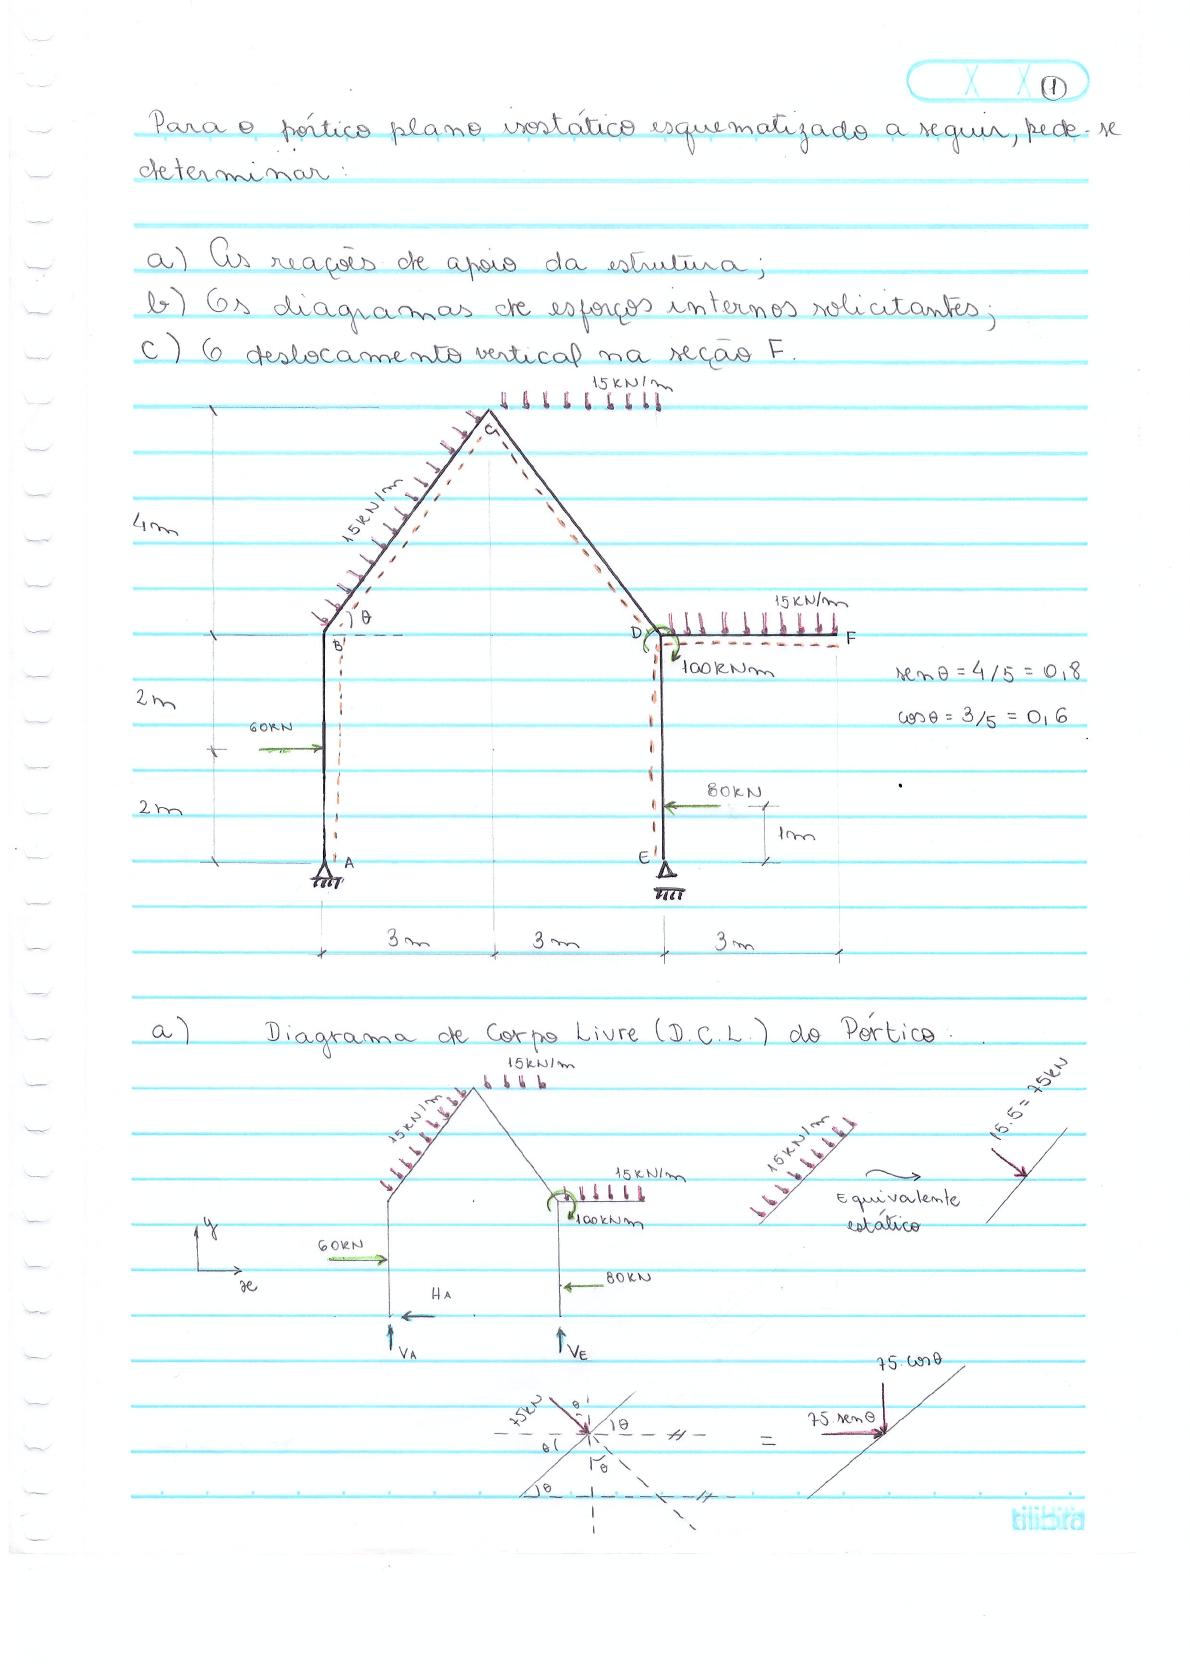 1
Para o pórtico plano isostático esquematizado a seguir, pede-se
determinar:
a) As reações de apoio da estrutura;
b) Os diagramas de esforços internos solicitantes;
c) O deslocamento vertical na seção F.
15KN/m
C
4m
15KN/m
θ
B
15KN/m
D
F
100KNm
senθ = 4/5 = 0,8
cosθ = 3/5 = 0,6
2m
60KN
2m
80KN
1m
A
E
3m
3m
3m
a) Diagrama de Corpo Livre (D.C.L.) do Pórtico.
15KN/m
15KN/m
15KN/m
100KNm
60KN
80KN
HA
VA
VE
y
x
15KN/m
Equivalente
estático
15.5 = 75KN
75KN
θ
θ
θ
θ
θ
=
75.cosθ
75.senθ
tilibra